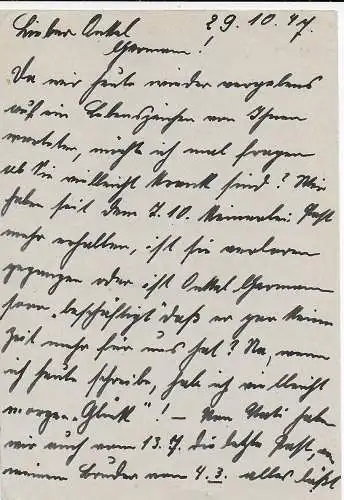 29.10.47.
Lieber Onkel
Hermann!
Da wir heute wieder vergebens
auf ein Lebenszeichen von Ihnen
warteten, möchte ich mal fragen
ob Sie vielleicht krank sind? Wir
haben seit dem 7.10. keinerlei Post
mehr erhalten, ist sie verloren
gegangen oder ist Onkel Hermann
so „beschäftigt" daß er gar keine
Zeit mehr für uns hat? Na, wenn
ich heute schreibe, hab ich vielleicht
morgen „Glück"! – Von Vati haben
wir auch vom 13.7. die letzte Post, von
meinem Bruder vom 4.3. alles läßt